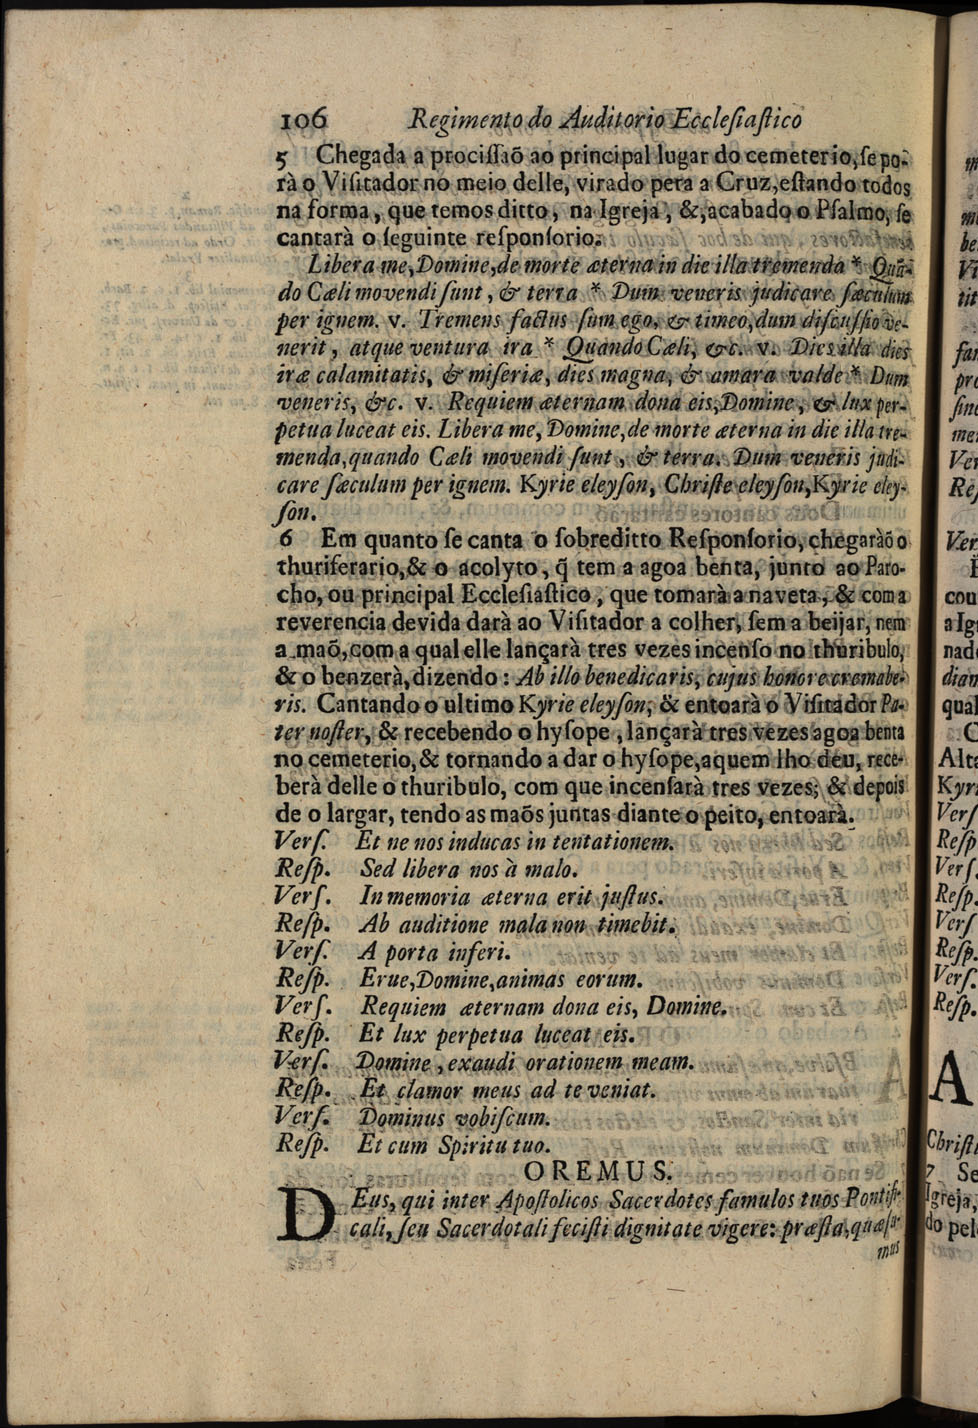 106 Regimento do Auditorio Eccleſiaſtico
5 Chegada a prociſſaõ ao principal lugar do cemeterio, ſe po-
rà o Viſitador no meio delle, virado pera a Cruz, eſtando todos
na forma, que temos ditto, na Igreja, &, acabado o Pſalmo, ſe
cantarà o ſeguinte reſponſorio.
Libera me, Domine, de morte æterna in die illa tremenda * Quã-
do Cæli movendi ſunt, & terra * Dum veneris judicare ſæculum
per ignem. v. Tremens factus ſum ego, & timeo, dum diſcuſſio ve-
nerit, atque ventura ira * Quando Cæli, &c. v. Dies illa dies
iræ calamitatis, & miſeriæ, dies magna, & amara valde * Dum
veneris, &c. v. Requiem æternam dona eis, Domine, & lux per-
petua luceat eis. Libera me, Domine, de morte æterna in die illa tre-
menda, quando Cæli movendi ſunt, & terra. Dum veneris judi-
care ſæculum per ignem. Kyrie eleyſon, Chriſte eleyſon, Kyrie eley-
ſon.
6 Em quanto ſe canta o ſobreditto Reſponſorio, chegaràõ o
thuriferario, & o acolyto, q̃ tem a agoa benta, junto ao Paro-
cho, ou principal Eccleſiaſtico, que tomarà a naveta, & com a
reverencia devida darà ao Viſitador a colher, ſem a beijar, nem
a maõ, com a qual elle lançarà tres vezes incenſo no thuribulo,
& o benzerà, dizendo: Ab illo benedicaris, cujus honore cremabe-
ris. Cantando o ultimo Kyrie eleyſon, & entoarà o Viſitador Pa-
ter noſter, & recebendo o hyſope, lançarà tres vezes agoa benta
no cemeterio, & tornando a dar o hyſope, aquem lho deu, rece-
berà delle o thuribulo, com que incenſarà tres vezes; & depois
de o largar, tendo as maõs juntas diante o peito, entoarà.
Verſ. Et ne nos inducas in tentationem.
Reſp. Sed libera nos à malo.
Verſ. In memoria æterna erit juſtus.
Reſp. Ab auditione mala non timebit.
Verſ. A porta inferi.
Reſp. Erue, Domine, animas eorum.
Verſ. Requiem æternam dona eis, Domine.
Reſp. Et lux perpetua luceat eis.
Verſ. Domine, exaudi orationem meam.
Reſp. Et clamor meus ad te veniat.
Verſ. Dominus vobiſcum.
Reſp. Et cum Spiritu tuo.
OREMUS.
DEus, qui inter Apoſtolicos Sacerdotes famulos tuos Pontifi-
cali, ſeu Sacerdotali feciſti dignitate vigere: præſta, quæſu-
mus